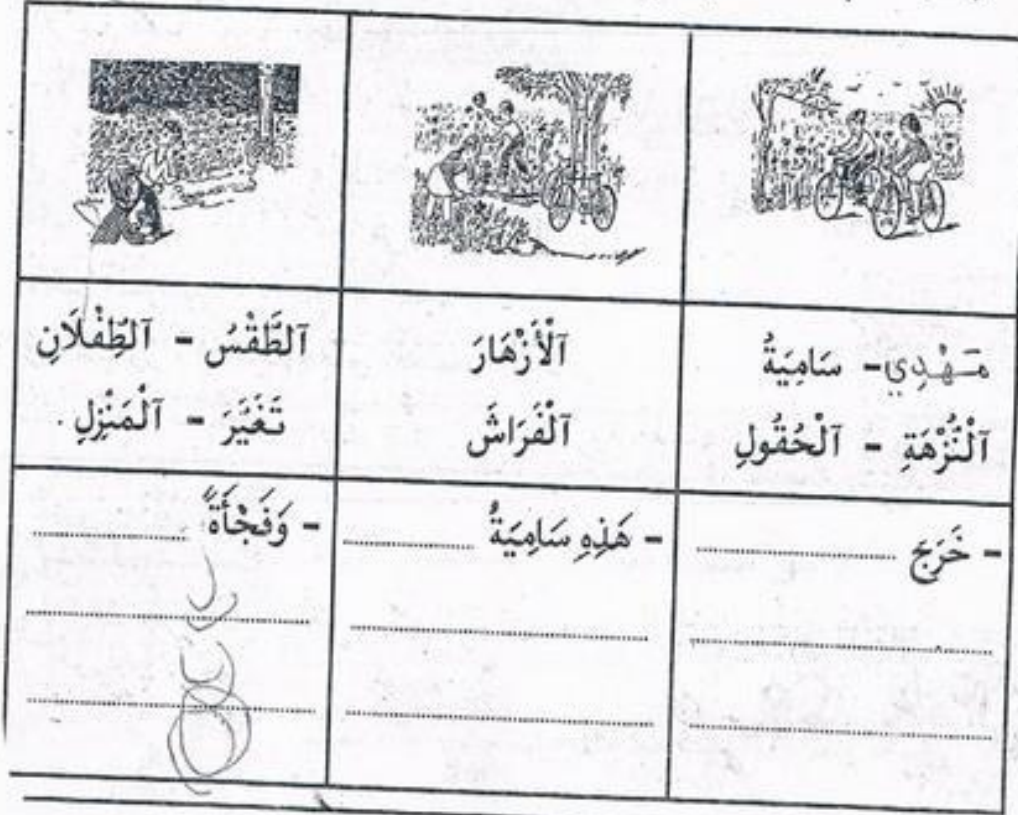 مَهْدِي - سَامِيَةُ
اَلنُّزْهَةِ - اَلْحُقُولِ
اَلْأَزْهَارَ
اَلْفَرَاشَ
اَلطَّقْسُ - اَلطِّفْلَانِ
تَغَيَّرَ - اَلْمَنْزِلِ.
- خَرَجَ ....................
- هَذِهِ سَامِيَةُ ....................
- وَفَجْأَةً ....................